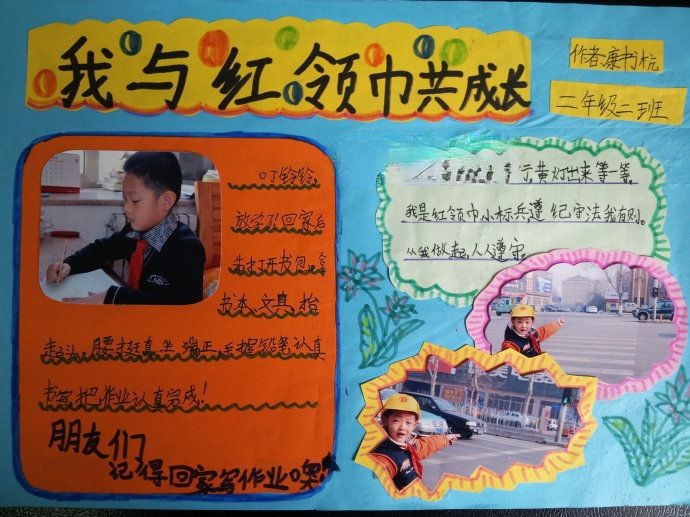 我与红领巾共成长
作者:康书杭
二年级二班
叮铃铃,
放学了,回家后
先打开书包,拿
书本、文具,抬
起头,腰挺直,坐端正,手握铅笔认真
书写,把作业认真完成!
朋友们
记得回家写作业噢!
行,黄灯出来等一等。
我是红领巾小标兵,遵纪守法我有则。
从我做起,人人遵守。